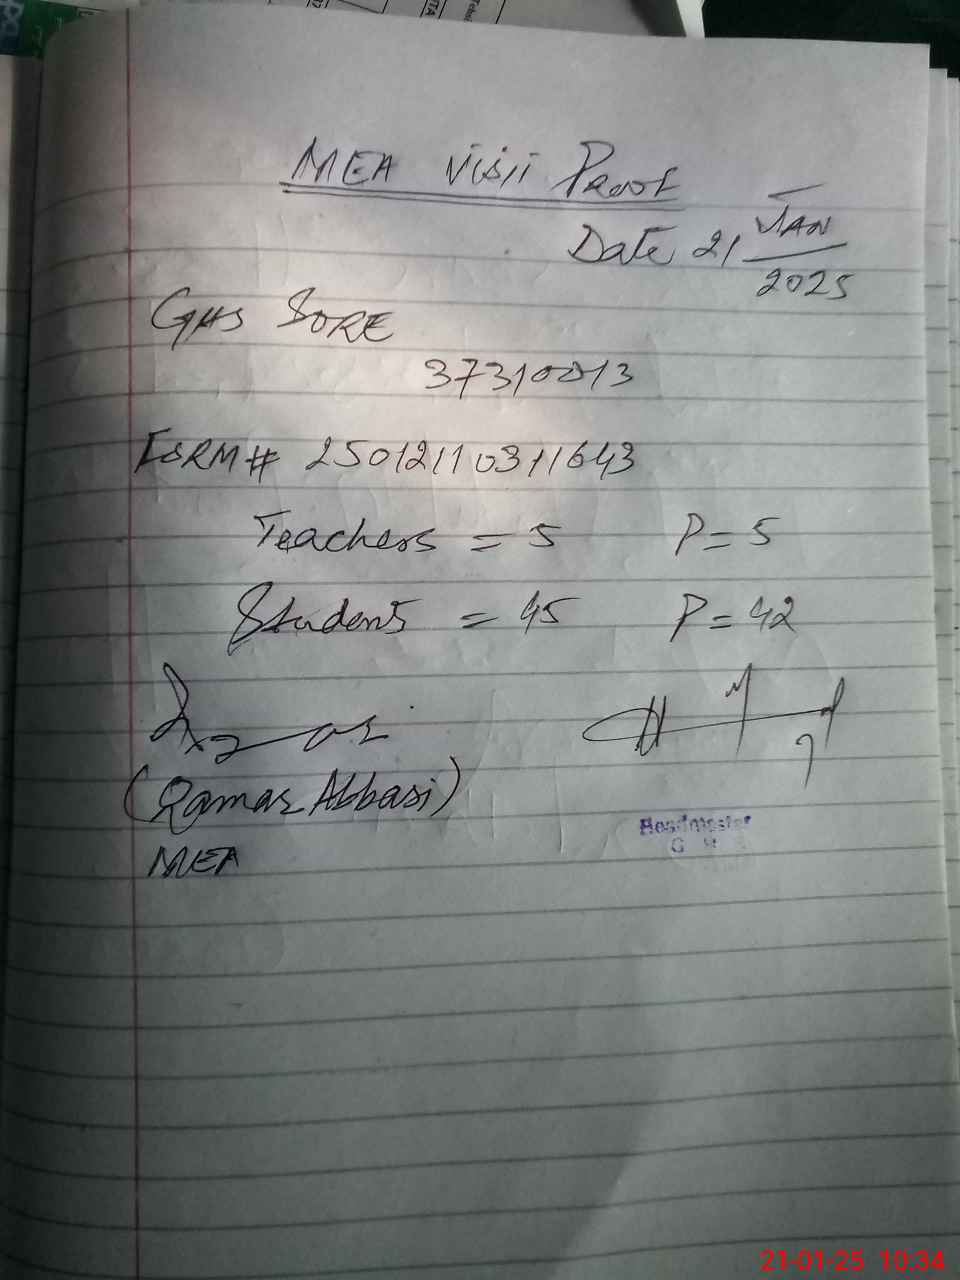 MEA Visit Proof
Date 21 JAN
2025
GHS SORE
37310013
FORM # 25012110311643
Teachers = 5 P = 5
Students = 45 P = 42
(Qamar Abbasi)
MEA
Headmaster
G H S
21-01-25 10:34